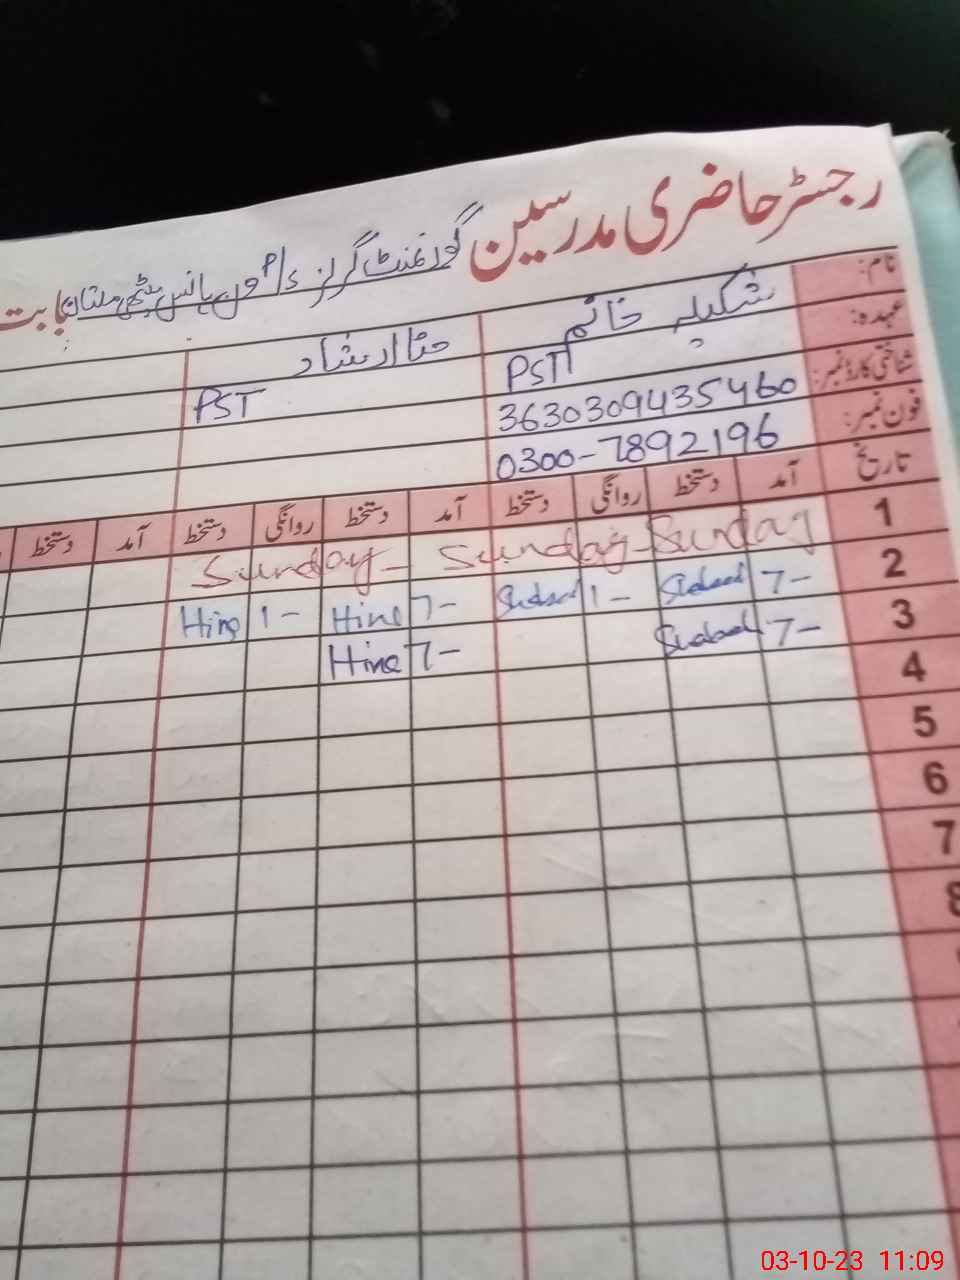 رجسٹر حاضری مدرسین گورنمنٹ گرلز بابت
نام: شکیلہ خانم حنا ارشاد
عہدہ: PST PST
شناختی کارڈ نمبر: 3630309435460
فون نمبر: 0300-7892196
تاریخ آمد دستخط روانگی دستخط آمد دستخط روانگی دستخط آمد دستخط
1 Sunday Sunday Sunday
2 7- 1- 7- Hina 1- Hina
3 7- 7- Hina
4
5
6
7
8
03-10-23 11:09